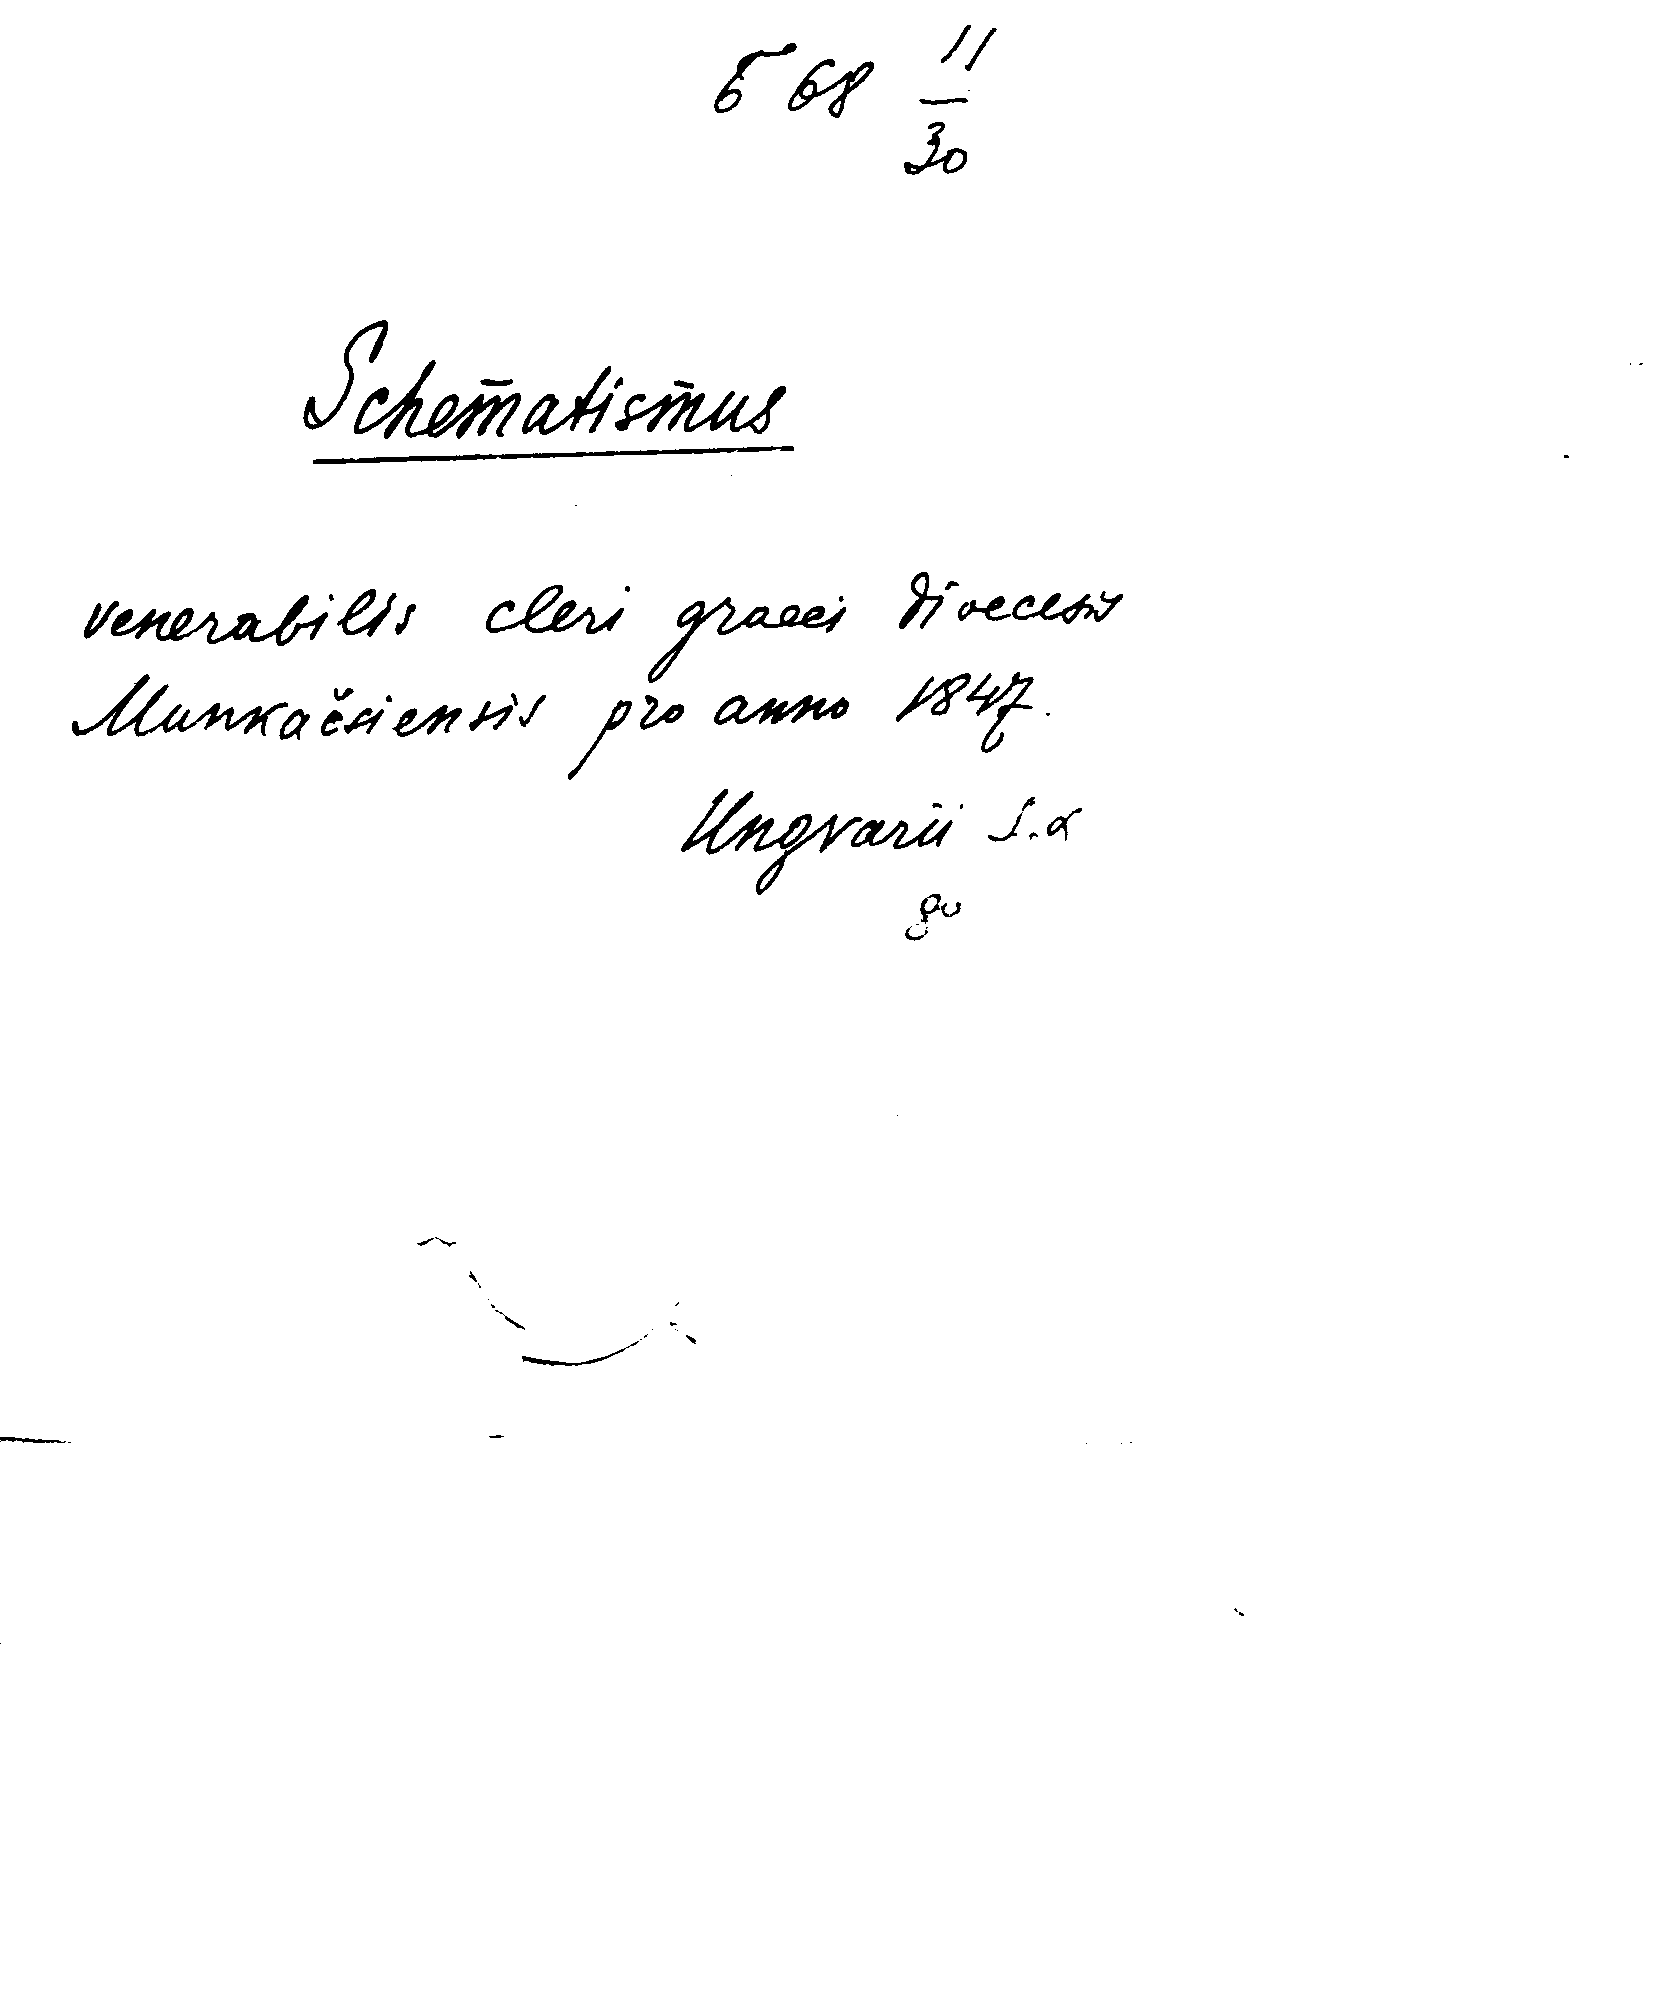 Б 68 11/30
Schematismus
venerabilis cleri graeci dioecesis
Munkačsiensis pro anno 1847.
Ungvarii S.a